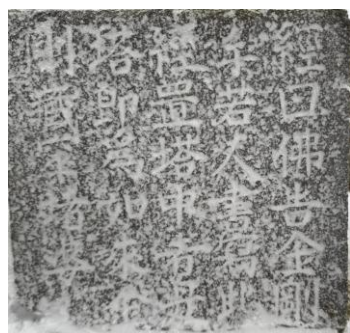 經曰佛告金剛
手若人書寫此
經置塔中者
塔即為如來金
剛藏窣堵